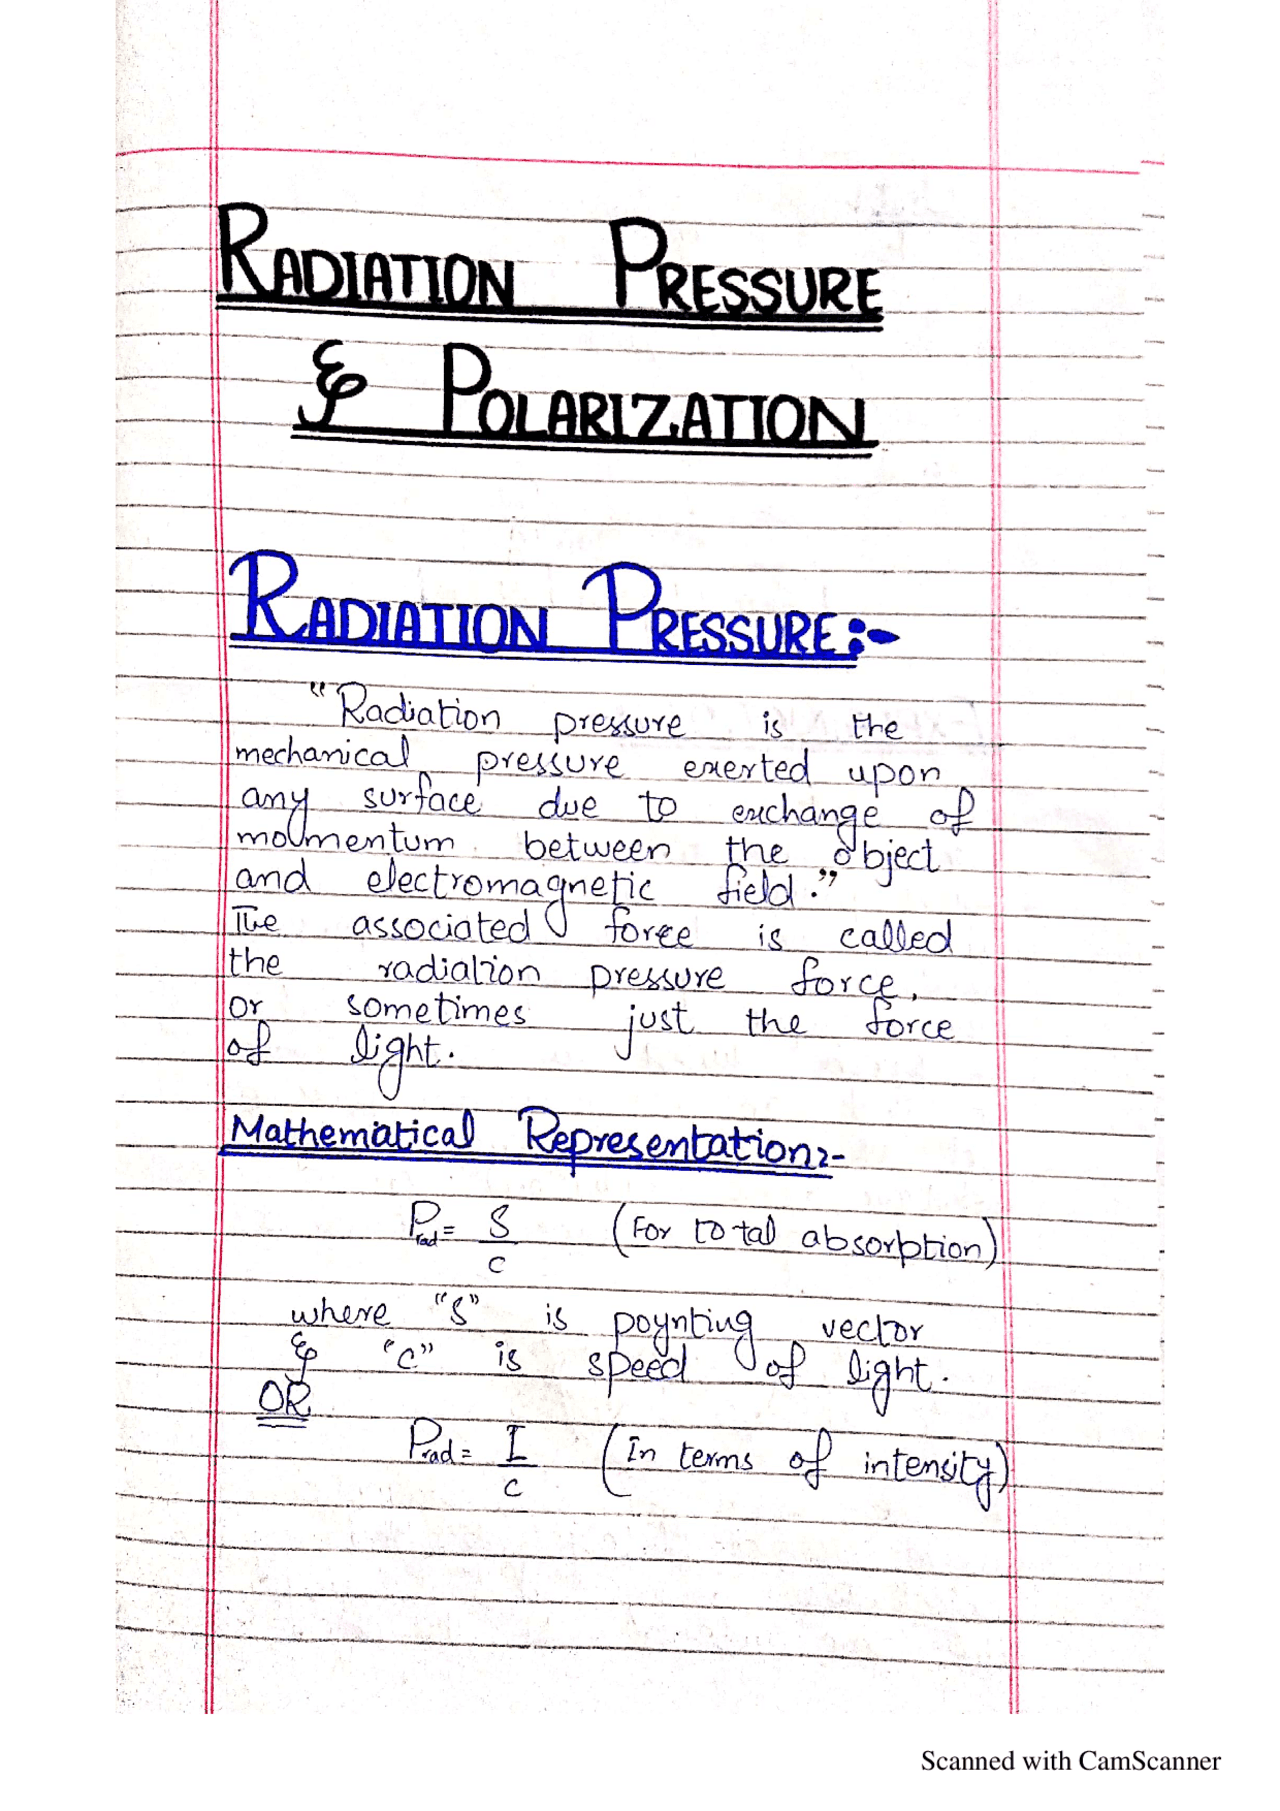 RADIATION PRESSURE
& POLARIZATION
RADIATION PRESSURE:-
"Radiation pressure is the
mechanical pressure exerted upon
any surface due to exchange of
momentum between the object
and electromagnetic field."
The associated force is called
the radiation pressure force,
or sometimes just the force
of light.
Mathematical Representation:-
Prad = S/c (For total absorption)
where "S" is poynting vector
& "C" is speed of light.
OR
Prad = I/c (In terms of intensity)
Scanned with CamScanner